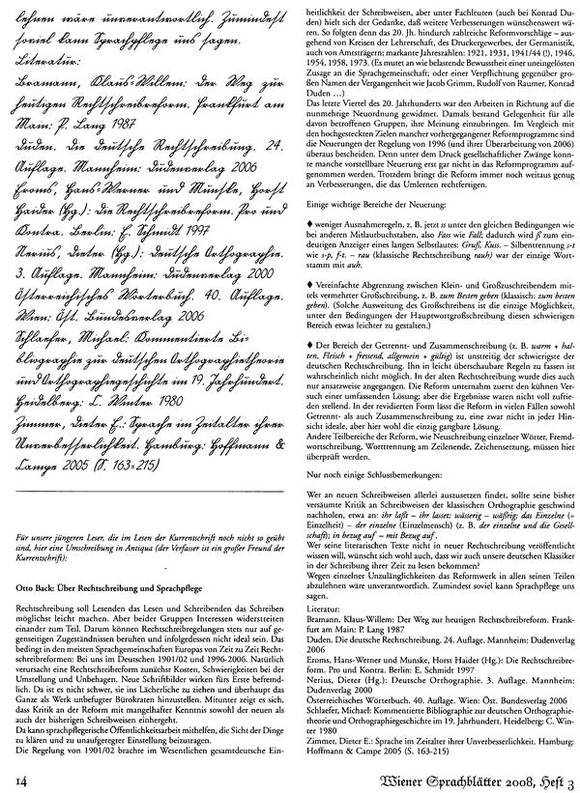 lehnen wäre unverantwortlich. Zumindest
soviel kann Sprachpflege uns sagen.
Literatur:
Bramann, Klaus-Willem: Der Weg zur
heutigen Rechtschreibreform. Frankfurt am
Main: P. Lang 1987
Duden. Die deutsche Rechtschreibung. 24.
Auflage. Mannheim: Dudenverlag 2006
Eroms, Hans-Werner und Munske, Horst
Haider (Hg.): Die Rechtschreibreform. Pro und
Kontra. Berlin: E. Schmidt 1997
Nerius, Dieter (Hg.): Deutsche Orthographie.
3. Auflage. Mannheim: Dudenverlag 2000
Österreichisches Wörterbuch. 40. Auflage.
Wien: Öst. Bundesverlag 2006
Schlaefer, Michael: Kommentierte Bi-
bliographie zur deutschen Orthographietheorie
und Orthographiegeschichte im 19. Jahrhundert.
Heidelberg: C. Winter 1980
Zimmer, Dieter E.: Sprache im Zeitalter ihrer
Unverbesserlichkeit. Hamburg: Hoffmann &
Campe 2005 (S. 163-215)
Für unsere jüngeren Leser, die im Lesen der Kurrentschrift noch nicht so geübt
sind, hier eine Umschreibung in Antiqua (der Verfasser ist ein großer Freund der
Kurrentschrift):
Otto Back: Über Rechtschreibung und Sprachpflege
Rechtschreibung soll Lesenden das Lesen und Schreibenden das Schreiben
möglichst leicht machen. Aber beider Gruppen Interessen widerstreiten
einander zum Teil. Darum können Rechtschreibregelungen stets nur auf ge-
genseitigen Zugeständnissen beruhen und infolgedessen nicht ideal sein. Das
bedingt in den meisten Sprachgemeinschaften Europas von Zeit zu Zeit Recht-
schreibreformen: Bei uns im Deutschen 1901/02 und 1996-2006. Natürlich
verursacht eine Rechtschreibreform zunächst Kosten, Schwierigkeiten bei der
Umstellung und Unbehagen. Neue Schriftbilder wirken fürs Erste befremd-
lich. Da ist es nicht schwer, sie ins Lächerliche zu ziehen und überhaupt das
Ganze als Werk unbefugter Bürokraten hinzustellen. Mitunter zeigt es sich,
dass Kritik an der Reform mit mangelhafter Kenntnis sowohl der neuen als
auch der bisherigen Schreibweisen einhergeht.
Da kann sprachpflegerische Öffentlichkeitsarbeit mithelfen, die Sicht der Dinge
zu klären und zu unaufgeregter Einstellung beizutragen.
Die Regelung von 1901/02 brachte im Wesentlichen gesamtdeutsche Ein-
heitlichkeit der Schreibweisen, aber unter Fachleuten (auch bei Konrad Du-
den) hielt sich der Gedanke, daß weitere Verbesserungen wünschenswert wä-
ren. So folgten denn das 20. Jh. hindurch zahlreiche Reformvorschläge – aus-
gehend von Kreisen der Lehrerschaft, des Druckergewerbes, der Germanistik,
auch von Amtsträgern; markante Jahreszahlen: 1921, 1931, 1941/44 (!), 1946,
1954, 1958, 1973. (Es mutet an wie belastende Bewusstheit einer uneingelösten
Zusage an die Sprachgemeinschaft; oder einer Verpflichtung gegenüber gro-
ßen Namen der Vergangenheit wie Jacob Grimm, Rudolf von Raumer, Konrad
Duden …)
Das letzte Viertel des 20. Jahrhunderts war den Arbeiten in Richtung auf die
nunmehrige Neuordnung gewidmet. Damals bestand Gelegenheit für alle
davon betroffenen Gruppen, ihre Meinung einzubringen. Im Vergleich mit
den hochgesteckten Zielen mancher vorhergegangener Reformprogramme sind
die Neuerungen der Regelung von 1996 (und ihrer Überarbeitung von 2006)
überaus bescheiden. Denn unter dem Druck gesellschaftlicher Zwänge konn-
te manche vorstellbare Neuerung erst gar nicht in das Reformprogramm auf-
genommen werden. Trotzdem bringt die Reform immer noch weitaus genug
an Verbesserungen, die das Umlernen rechtfertigen.
Einige wichtige Bereiche der Neuerung:
♦ weniger Ausnahmeregeln, z. B. jetzt ss unter den gleichen Bedingungen wie
bei anderen Mitlautbuchstaben, also Fass wie Fall; dadurch wird ß zum ein-
deutigen Anzeiger eines langen Selbstlautes: Gruß, Kuss. – Silbentrennung s-t
wie s-p, f-t. – rau (klassische Rechtschreibung rauh) war der einzige Wort-
stamm mit auh.
♦ Vereinfachte Abgrenzung zwischen Klein- und Großzuschreibendem mit-
tels vermehrter Großschreibung, z. B. zum Besten geben (klassisch: zum besten
geben). (Solche Ausweitung des Großschreibens ist die einzige Möglichkeit,
unter den Bedingungen der Hauptwortgroßschreibung diesen schwierigen
Bereich etwas leichter zu gestalten.)
♦ Der Bereich der Getrennt- und Zusammenschreibung (z. B. warm + hal-
ten, Fleisch + fressend, allgemein + gültig) ist unstreitig der schwierigste der
deutschen Rechtschreibung. Ihn in leicht überschaubare Regeln zu fassen ist
wahrscheinlich nicht möglich. In der alten Rechtschreibung wurde dies auch
nur ansatzweise angegangen. Die Reform unternahm zuerst den kühnen Ver-
such einer umfassenden Lösung; aber die Ergebnisse waren nicht voll zufrie-
den stellend. In der revidierten Form lässt die Reform in vielen Fällen sowohl
Getrennt- als auch Zusammenschreibung zu, eine zwar nicht in jeder Hin-
sicht ideale, aber hier wohl die einzig gangbare Lösung.
Andere Teilbereiche der Reform, wie Neuschreibung einzelner Wörter, Fremd-
wortschreibung, Worttrennung am Zeilenende, Zeichensetzung, müssen hier
überprüft werden.
Nur noch einige Schlussbemerkungen:
Wer an neuen Schreibweisen allerlei auszusetzen findet, sollte seine bisher
versäumte Kritik an Schreibweisen der klassischen Orthographie geschwind
nachholen, etwa an: ihr laßt – ihr lasset; wässerig – wäßrig; das Einzelne (=
Einzelheit) – der einzelne (Einzelmensch) (z. B. der einzelne und die Gesell-
schaft); in bezug auf – mit Bezug auf .
Wer seine literarischen Texte nicht in neuer Rechtschreibung veröffentlicht
wissen will, wünscht sich wohl auch, dass wir auch unsere deutschen Klassiker
in der Schreibung ihrer Zeit zu lesen bekommen?
Wegen einzelner Unzulänglichkeiten das Reformwerk in allen seinen Teilen
abzulehnen wäre unverantwortlich. Zumindest soviel kann Sprachpflege uns
sagen.
Literatur:
Bramann, Klaus-Willem: Der Weg zur heutigen Rechtschreibreform. Frank-
furt am Main: P. Lang 1987
Duden. Die deutsche Rechtschreibung. 24. Auflage. Mannheim: Dudenverlag
2006
Eroms, Hans-Werner und Munske, Horst Haider (Hg.): Die Rechtschreibre-
form. Pro und Kontra. Berlin: E. Schmidt 1997
Nerius, Dieter (Hg.): Deutsche Orthographie. 3. Auflage. Mannheim:
Dudenverlag 2000
Österreichisches Wörterbuch. 40. Auflage. Wien: Öst. Bundesverlag 2006
Schlaefer, Michael: Kommentierte Bibliographie zur deutschen Orthographie-
theorie und Orthographiegeschichte im 19. Jahrhundert. Heidelberg: C. Win-
ter 1980
Zimmer, Dieter E.: Sprache im Zeitalter ihrer Unverbesserlichkeit. Hamburg:
Hoffmann & Campe 2005 (S. 163-215)
14
Wiener Sprachblätter 2008, Heft 3